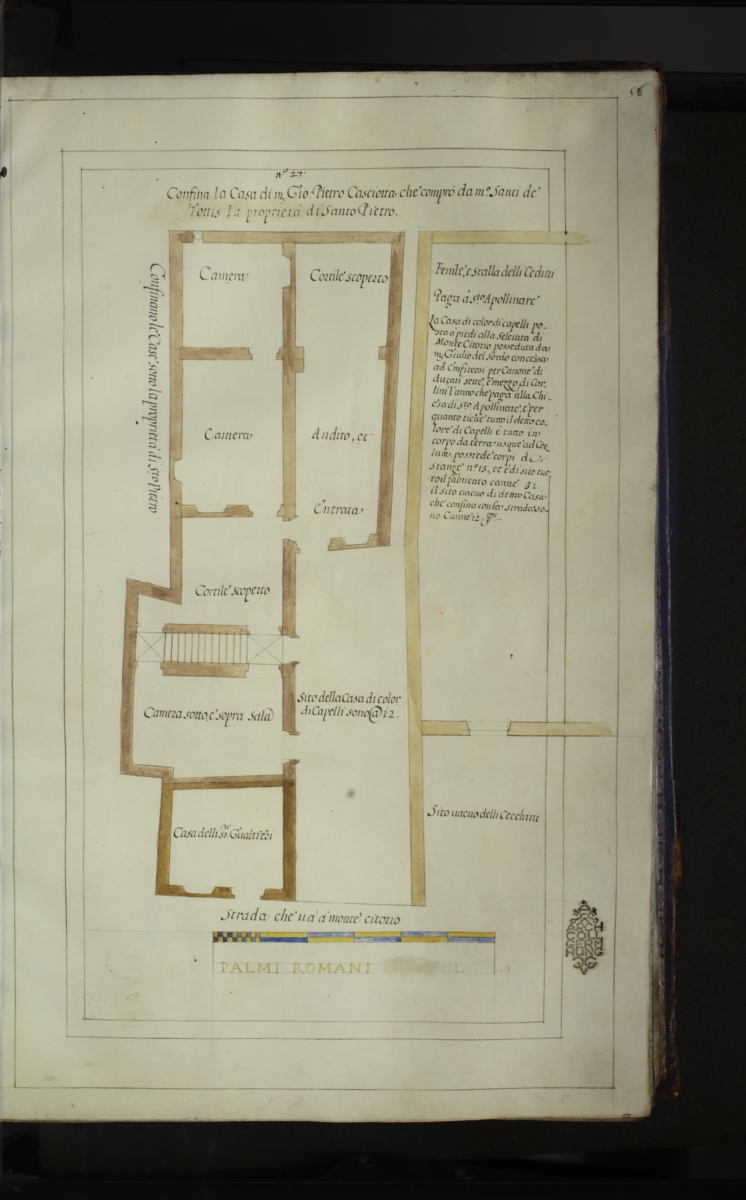 58
nº 27.
Confina la Casa di m. Gio Pietro Casciotta, che comprò da mº Santi de
Tottis la proprietà di Santo Pietro.
Confinano le Case sotto la proprietà di Sto Pietro
Camera
Cortile scoperto
Camera
Andito, et
Entrata
Cortile scoperto
Camera sotto, e sopra Sala
Sito della Casa di color
di Capelli sono @ 12.
Casa delli SSri Gualtieri
Fenile, e stalla delli Cedini
Paga à Sto Apollinare
La Casa di color di capelli po-
sta a' piedi alla Selciata di
Monte Citorio posseduta da
m. Giulio del Sordo concessa
ad Emfiteosi per Canone di
ducati sette, e mezzo di Car-
lini l'anno che paga alla Chi-
esa di Sto Apollinare, e per
quanto tiene tutto il detto co-
lore di Capelli è tutto in
corpo da terra usque ad Coe-
lum, possiede corpi di
stanze nº 13, et è di sito tut-
to il fabricato canne 31.
il sito vacuo di detta Casa
che confina con la strada so-
no Canne 12
Sito vacuo delli Cecchini
Strada che và à monte citorio
PALMI ROMANI